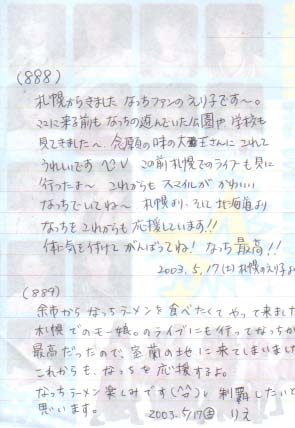 (888)
札幌からきました なっちファンのえり子です～。
ココに来る前も なっちの遊んでいた公園や 学校も
見てきました～。念願の味の大王さんに これて
うれしいです ^o^V この前 札幌でのライブも 見に
行ったよ～ これからも スマイルが かわいい
なっちでいてね～ 札幌より、そして 北海道より
なっちを これからも 応援しています!!
体に気を付けて がんばってね! なっち 最高!!
2003.5.17(土) 札幌のえり子より
(889)
余市から なっちラーメンを 食べたくて やって来ました
札幌でのモー娘。のライブにも 行って なっちが
最高だったので、室蘭の地に 来てしまいました
これからも、なっちを 応援するよ。
なっちラーメン 楽しみです(^o^)ノ 制覇したいと
思います。 2003.5/17(土) りえ